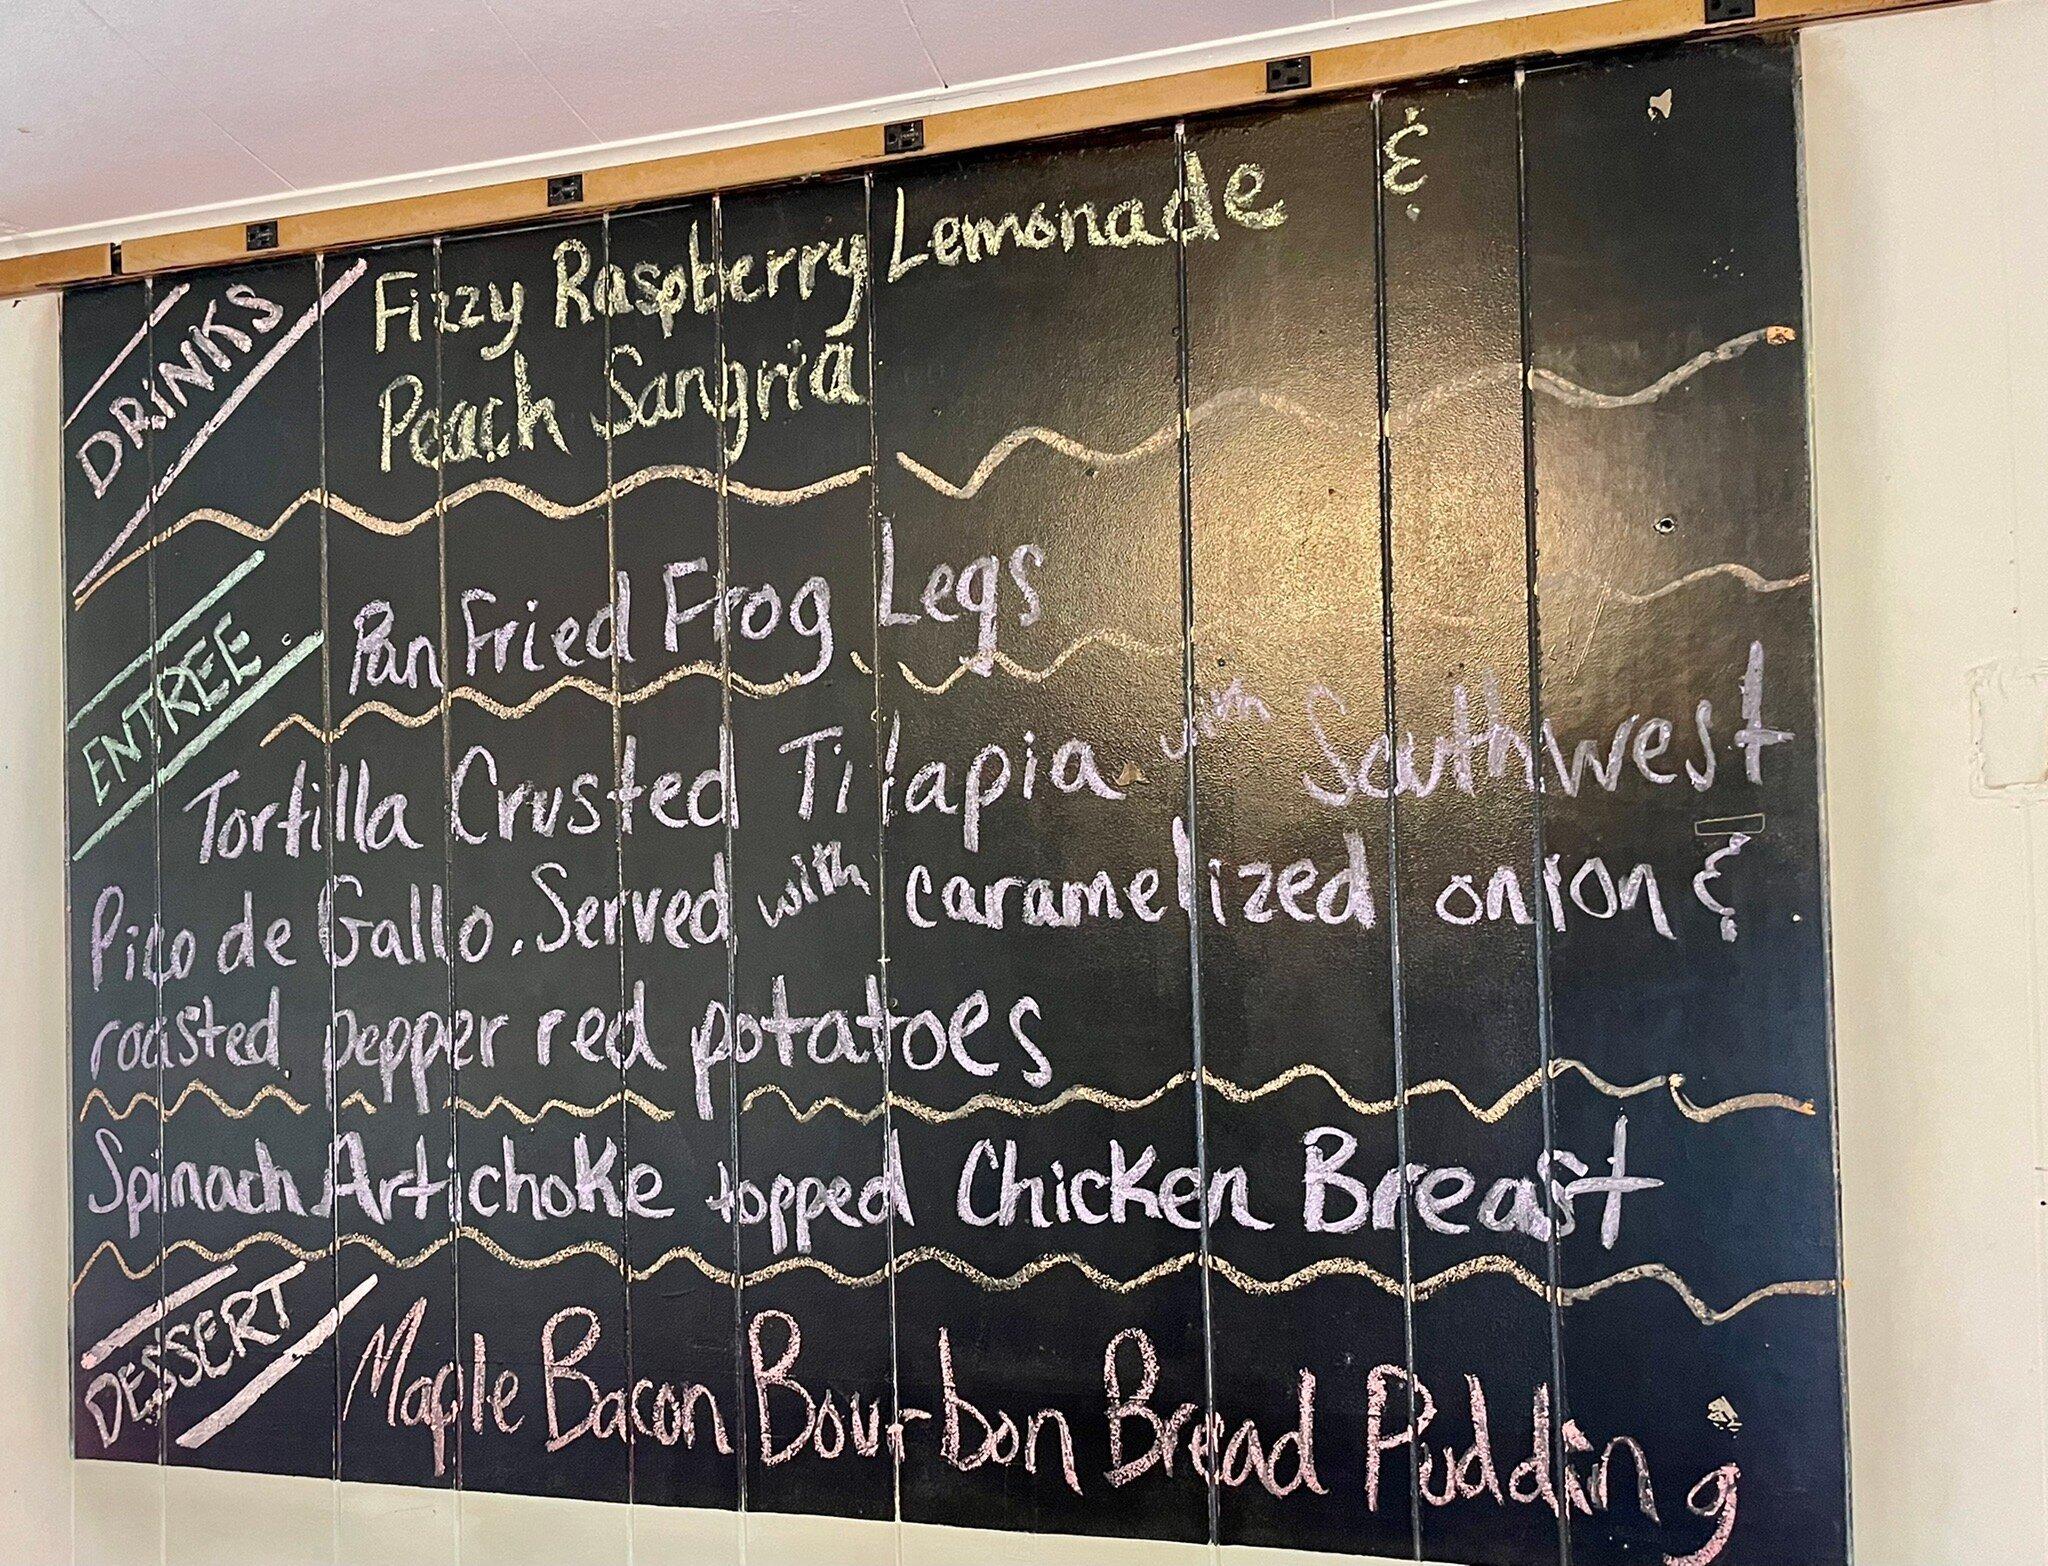 DRiNKS
Fizzy Raspberry Lemonade &
Peach Sangria
ENTREE
Pan Fried Frog Legs
Tortilla Crusted Tilapia with Southwest
Pico de Gallo. Served with caramelized onion &
roasted pepper red potatoes
Spinach Artichoke topped Chicken Breast
DESSERT
Maple Bacon Bourbon Bread Pudding